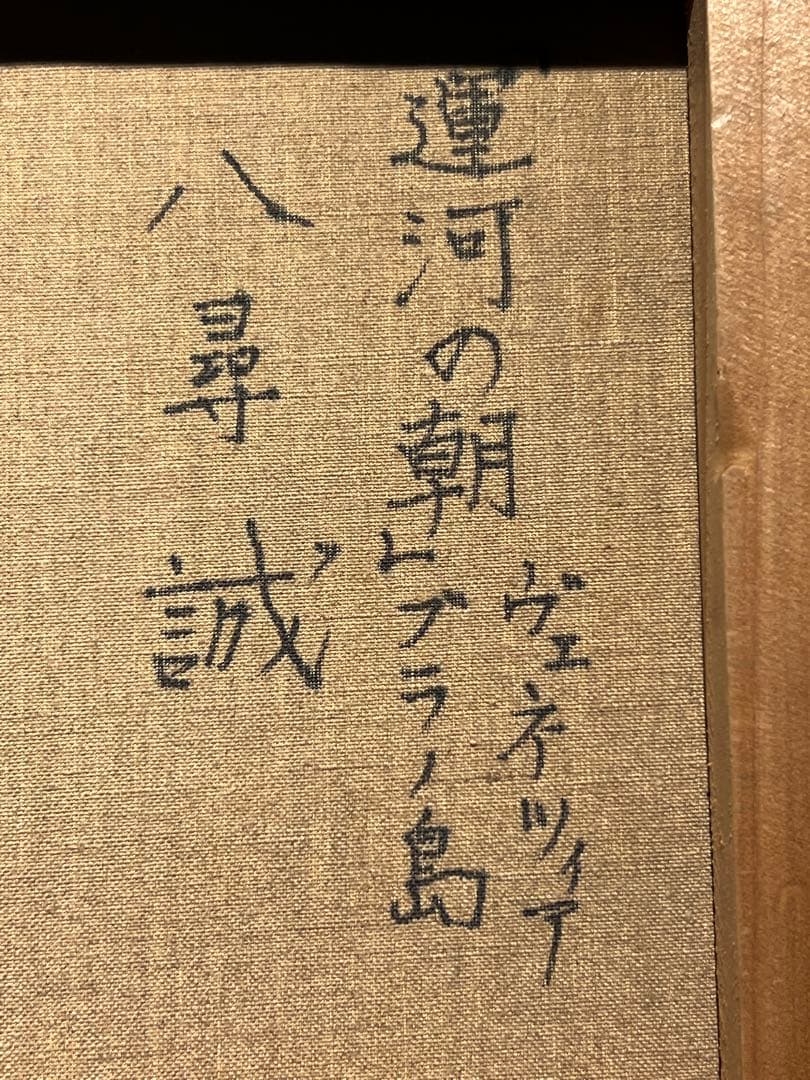 運河の朝
ヴェネツィア
ブラノ島
八尋誠